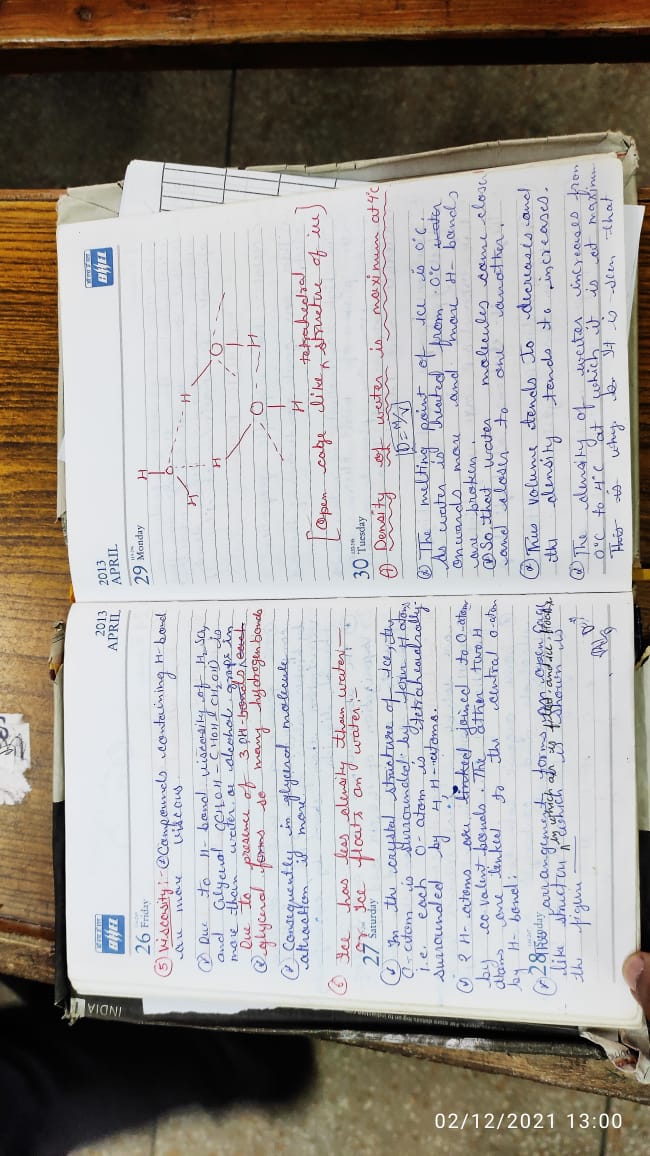 INDIA
BHEL
2013
APRIL
26 Friday
⑤ Viscosity :- Compounds containing H-bond
are more viscous
Due to H-bond viscosity of H₂SO₄
and Glycerol (CH₂OH-CHOH-CH₂OH) is
more than water or alcohol
Due to presence of 3 OH groups in
glycerol forms so many hydrogen bonds
Consequently in glycerol molecule
attraction is more
⑥ Ice has less density than water:-
or Ice floats on water:-
27 Saturday
In the crystal structure of Ice, the
O-atom is surrounded by four H atoms
i.e. each O-atom is tetrahedrally
surrounded by 4, H-atoms.
2 H-atoms are linked joined to O-atom
by covalent bonds. The other two H
atoms are linked to the central O-atom
by H-bond.
28 Sunday
arrangement forms open cage
like structure in which air is and ice floats
which is shown in
the figure
BHEL
2013
APRIL
29 Monday
H
O
H
H
O
H
H
O
H
[Open cage like tetrahedral structure of ice]
30 Tuesday
⑦ Density of water is maximum at 4°C
[D=M/V]
The melting point of ice is 0°C.
As water is heated from 0°C water
onwards more and more H-bonds
are broken.
So that water molecules come close
and closer to one another.
Thus volume tends to decreases and
the density tends to increases.
The density of water increases from
0°C to 4°C at which it is at maximum
This is why It is seen that
02/12/2021 13:00